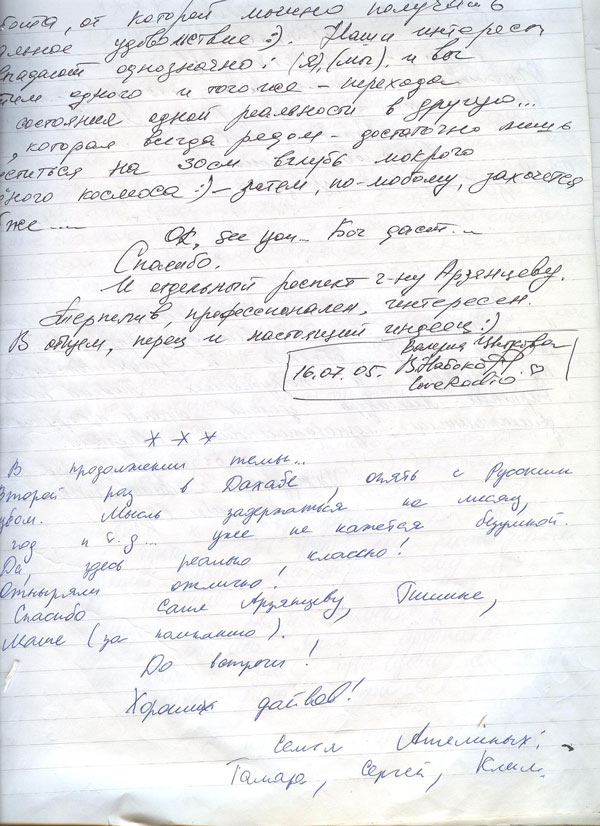 бота, от которой можно получать
удовольствие :). Наши интересы
впадают однозначно: (я), (мы) и вы
одного и того же – перехода
состояния одной реальности в другую...
, которая всегда рядом – достаточно лишь
ститься на 30см вглубь мокрого
ного космоса :) – затем, по-любому, захочется
же ...
OK, see you – Бог даст...
Спасибо.
И отдельный респект г-ну Арзянцеву.
Терпелив, профессионален, интересен.
В общем, перец и настоящий индеец :)
Валерия Цветкова
16.07.05. В.Набоко
LoveRadio ♡
* * *
В продолжении темы...
Второй раз в Дахабе, опять с Русским
убом. Мысль задержаться на месяц,
год и т.д... уже не кажется безумной.
Да, здесь реально классно!
Отныряли отлично!
Спасибо Саше Арзянцеву, Тишине,
Маше (за компанию).
До встречи!
Хороших дайвов!
Семья
Тамара, Сергей, Клим.